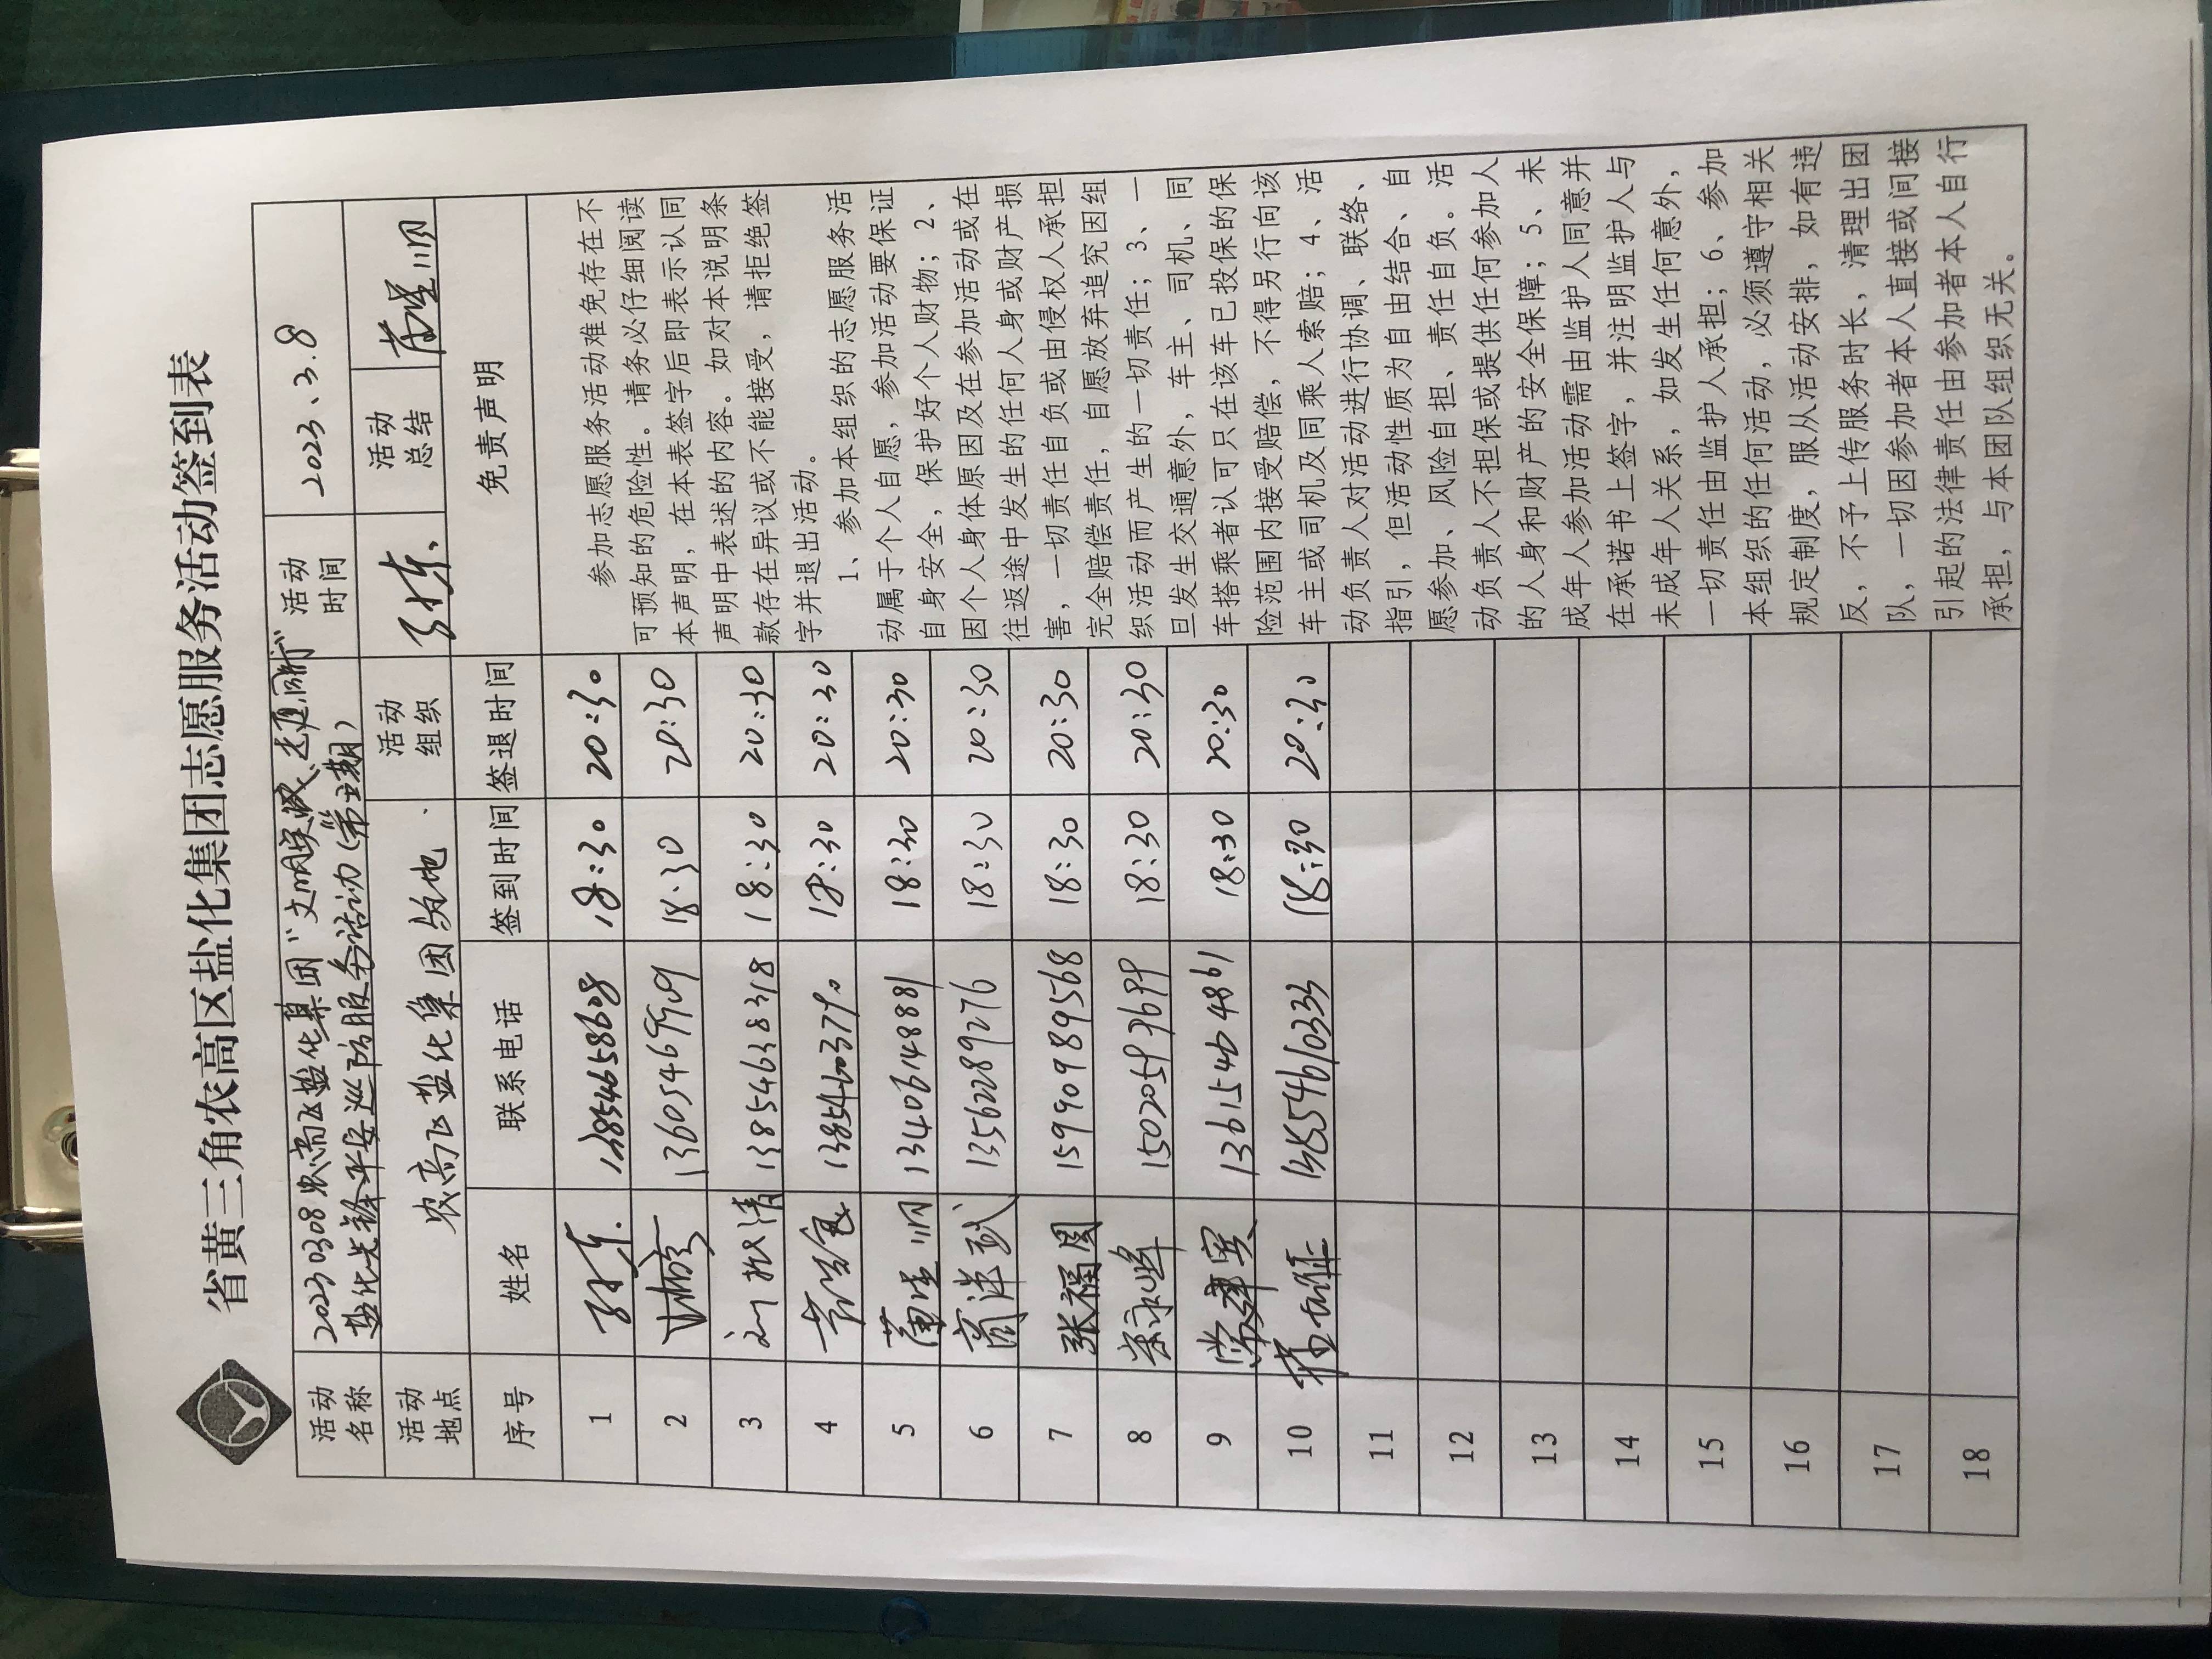 省黄三角农高区盐化集团志愿服务活动签到表
活动名称 20230308农高飞盐化集团"文明实践 盐化先锋平安巡防服务活动(第 期) 活动时间 2023、3.8
活动地点 农高飞盐化集团 地 活动组织 活动总结
序号 姓名 联系电话 签到时间 签退时间 免责声明
1 13854658608 18:30 20:30
2 18:30 20:30
3 刘 清 13854638318 18:30 20:30
4 18:30 20:30
5 13406148881 18:30 20:30
6 商洋武 13562889276 18:30 20:30
7 张福国 15990989568 18:30 20:30
8 18:30 20:30
9 13615464861 18:30 20:30
10 18:30 20:30
11
12
13
14
15
16
17
18
参加志愿服务活动难免存在不
可预知的危险性。请务必仔细阅读
本声明,在本表签字后即表示认同
声明中表述的内容。如对本说明条
款存在异议或不能接受,请拒绝签
字并退出活动。
1、参加本组织的志愿服务活
动属于个人自愿,参加活动要保证
自身安全,保护好个人财物;2、
因个人身体原因及在参加活动或在
往返途中发生的任何人身或财产损
害,一切责任自负或由侵权人承担
完全赔偿责任,自愿放弃追究因组
织活动而产生的一切责任;3、一
旦发生交通意外,车主、司机、同
车搭乘者认可只在该车已投保的保
险范围内接受赔偿,不得另行向该
车主或司机及同乘人索赔;4、活
动负责人对活动进行协调、联络、
指引,但活动性质为自由结合、自
愿参加、风险自担、责任自负。活
动负责人不担保或提供任何参加人
的人身和财产的安全保障;5、未
成年人参加活动需由监护人同意并
在承诺书上签字,并注明监护人与
未成年人关系,如发生任何意外,
一切责任由监护人承担;6、参加
本组织的任何活动,必须遵守相关
规定制度,服从活动安排,如有违
反,不予上传服务时长,清理出团
队,一切因参加者本人直接或间接
引起的法律责任由参加者本人自行
承担,与本团队组织无关。